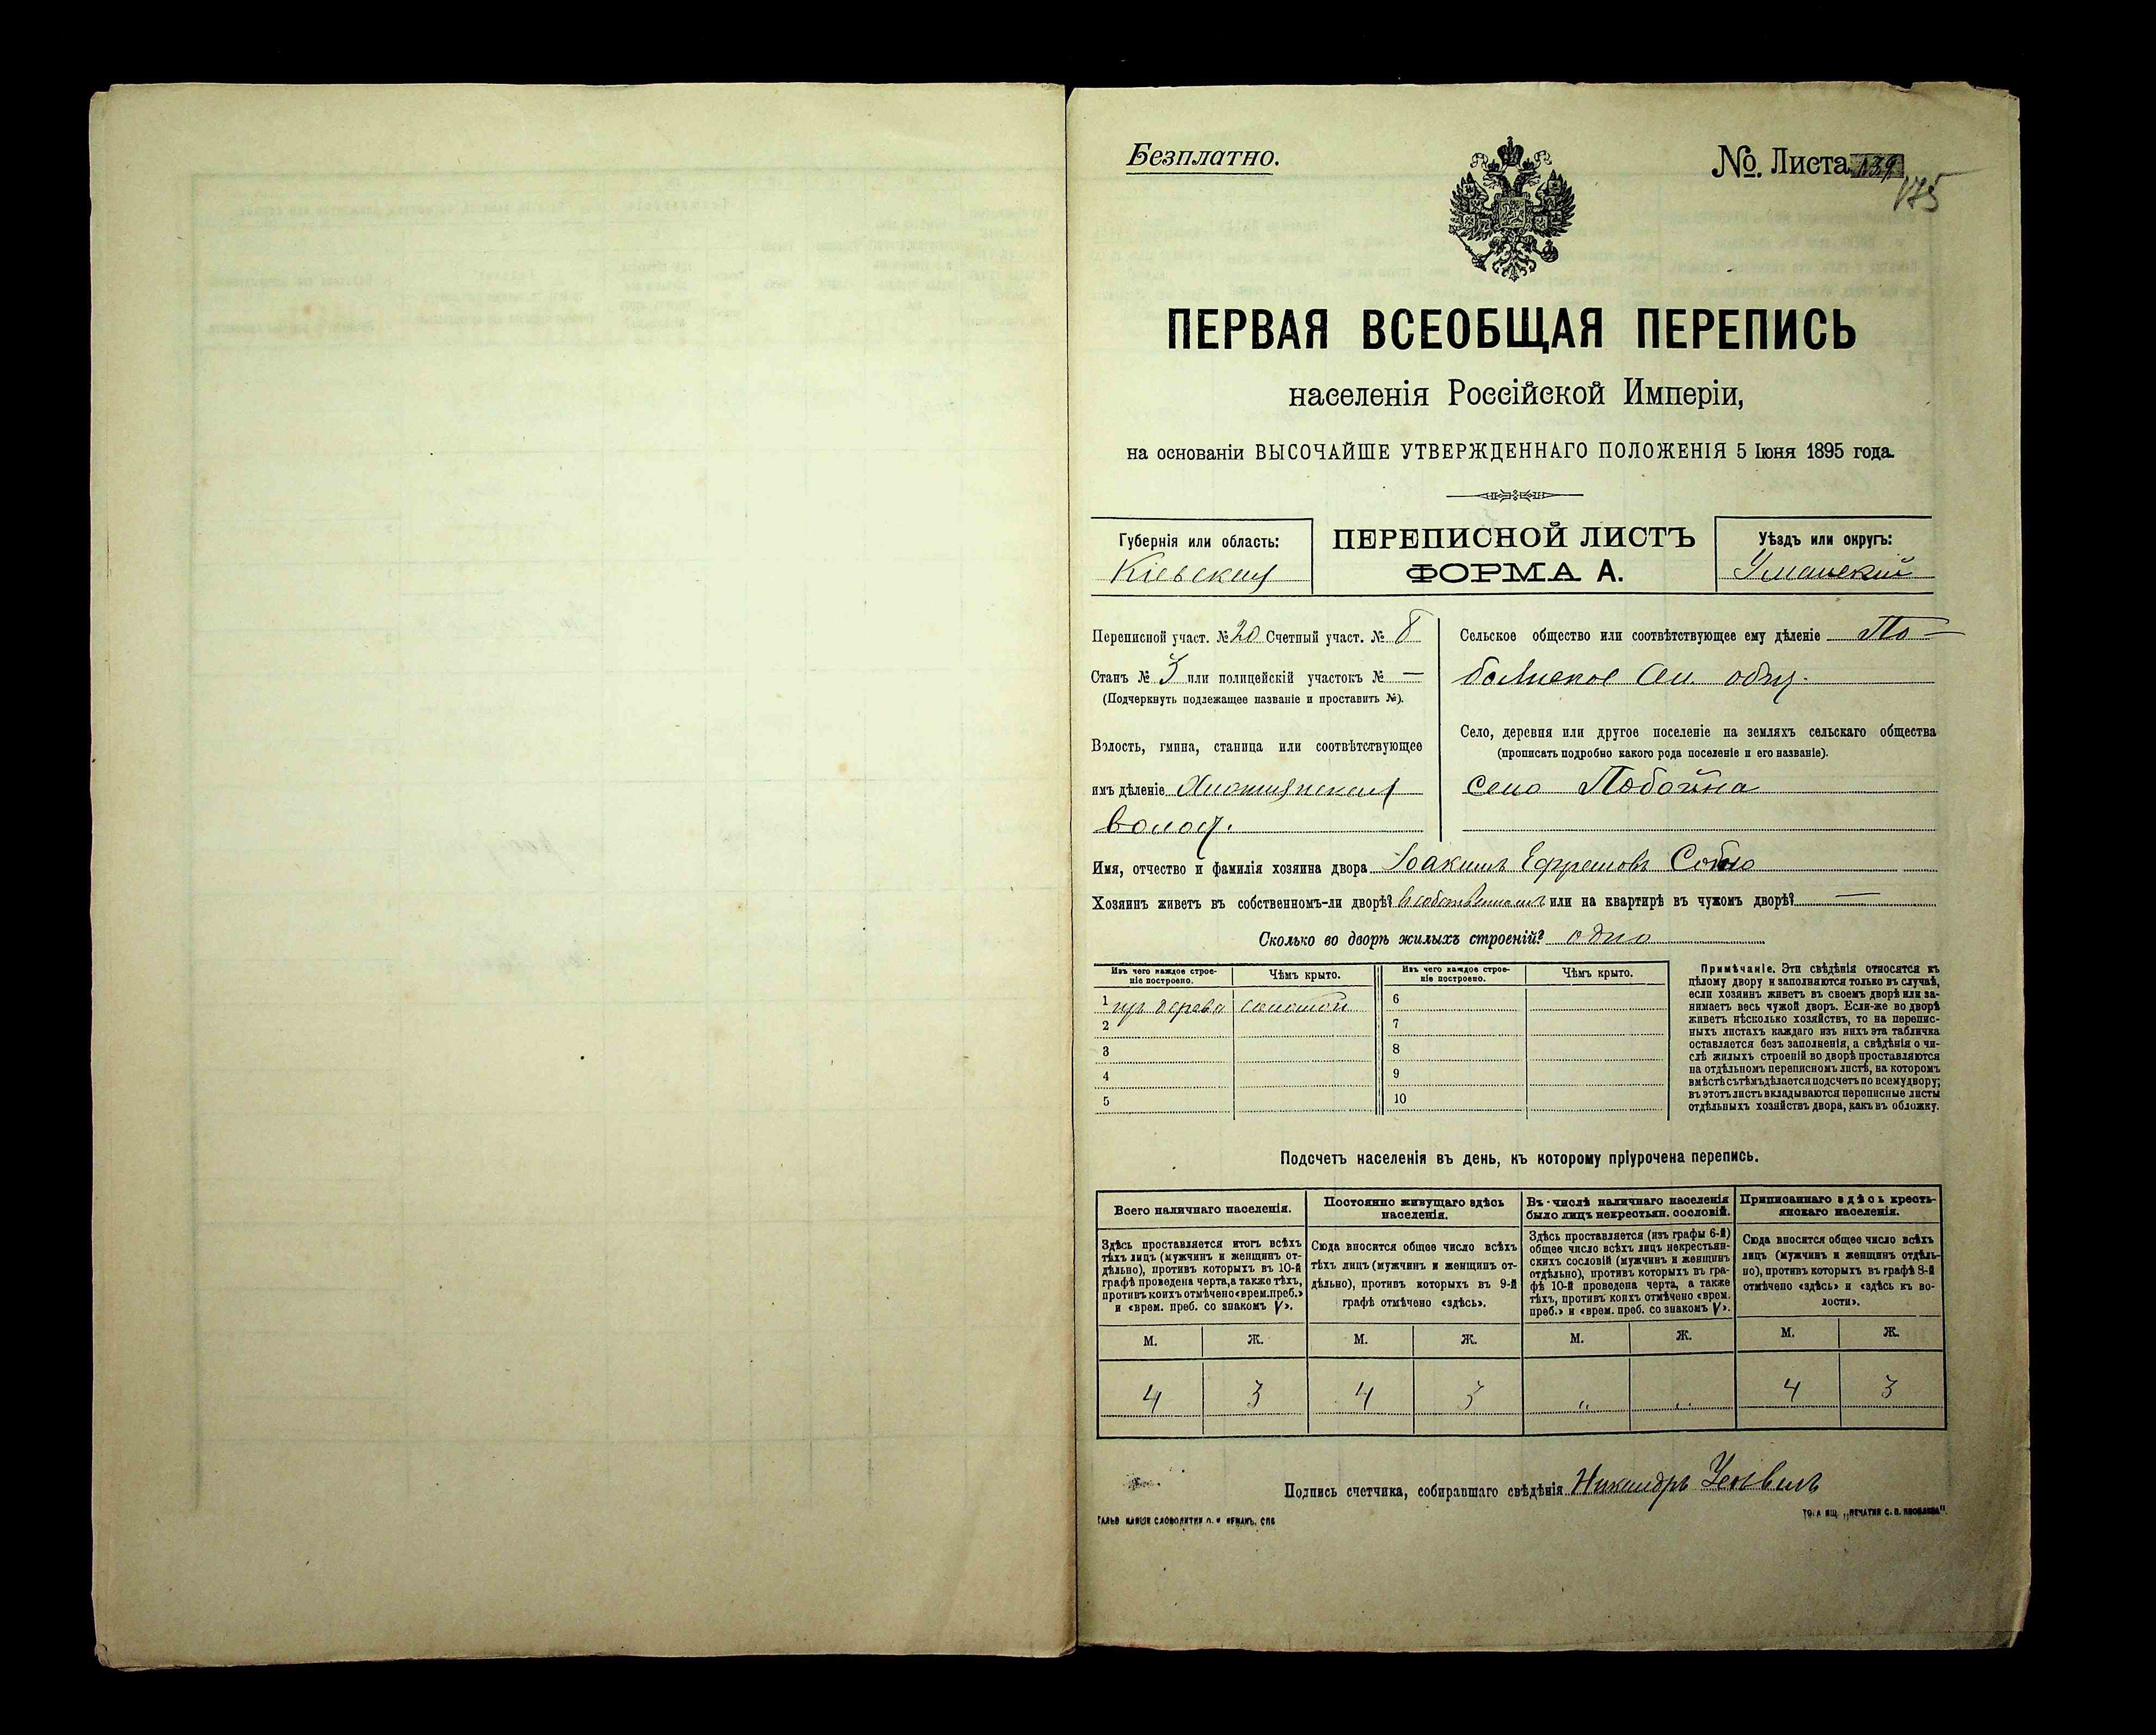 Безплатно.
№. Листа 139
175
ПЕРВАЯ ВСЕОБЩАЯ ПЕРЕПИСЬ
населенія Россійской Имперіи,
на основаніи ВЫСОЧАЙШЕ УТВЕРЖДЕННАГО ПОЛОЖЕНІЯ 5 Іюня 1895 года.
Губернія или область:
Кіевская
ПЕРЕПИСНОЙ ЛИСТЪ
ФОРМА А.
Уѣздъ или округъ:
Уманскій
Переписной участ. № 20 Счетный участ. № 8
Станъ № 3 или полицейскій участокъ № —
(Подчеркнуть подлежащее названіе и проставить №).
Волость, гмина, станица или соотвѣтствующее
имъ дѣленіе
волост.
Сельское общество или соотвѣтствующее ему дѣленіе По-
сел. общ.
Село, деревня или другое поселеніе на земляхъ сельскаго общества
(прописать подробно какого рода поселеніе и его названіе).
село Побойна
Имя, отчество и фамилія хозяина двора Іоакимъ Ефремовъ
Хозяинъ живетъ въ собственномъ-ли дворѣ? въ собственномъ или на квартирѣ въ чужомъ дворѣ? —
Сколько во дворѣ жилыхъ строеній? одно
Изъ чего каждое строе-
ніе построено.
Чѣмъ крыто.
Изъ чего каждое строе-
ніе построено.
Чѣмъ крыто.
1 изъ дерева соломой
2
3
4
5
6
7
8
9
10
Примѣчаніе. Эти свѣдѣнія относятся къ
цѣлому двору и заполняются только въ случаѣ,
если хозяинъ живетъ въ своемъ дворѣ или за-
нимаетъ весь чужой дворъ. Если-же во дворѣ
живетъ нѣсколько хозяйствъ, то на перепис-
ныхъ листахъ каждаго изъ нихъ эта табличка
оставляется безъ заполненія, а свѣдѣнія о чи-
слѣ жилыхъ строеній во дворѣ проставляются
на отдѣльномъ переписномъ листѣ, на которомъ
вмѣстѣ съ тѣмъ дѣлается подсчетъ по всему двору;
въ этотъ листъ вкладываются переписные листы
отдѣльныхъ хозяйствъ двора, какъ въ обложку.
Подсчетъ населенія въ день, къ которому пріурочена перепись.
Всего наличнаго населенія.
Здѣсь проставляется итогъ всѣхъ
тѣхъ лицъ (мужчинъ и женщинъ от-
дѣльно), противъ которыхъ въ 10-й
графѣ проведена черта, а также тѣхъ,
противъ коихъ отмѣчено «врем. преб.»
и «врем. преб. со знакомъ V».
Постоянно живущаго здѣсь
населенія.
Сюда вносится общее число всѣхъ
тѣхъ лицъ (мужчинъ и женщинъ от-
дѣльно), противъ которыхъ въ 9-й
графѣ отмѣчено «здѣсь».
Въ числѣ наличнаго населенія
было лицъ некрестьян. сословій.
Здѣсь проставляется (изъ графы 6-й)
общее число всѣхъ лицъ некрестьян-
скихъ сословій (мужчинъ и женщинъ
отдѣльно), противъ которыхъ въ гра-
фѣ 10-й проведена черта, а также
тѣхъ, противъ коихъ отмѣчено «врем.
преб.» и «врем. преб. со знакомъ V».
Приписаннаго здѣсь кресть-
янскаго населенія.
Сюда вносится общее число всѣхъ
лицъ (мужчинъ и женщинъ отдѣль-
но), противъ которыхъ въ графѣ 8-й
отмѣчено «здѣсь» и «здѣсь къ во-
лости».
М. Ж. М. Ж. М. Ж. М. Ж.
4 3 4 3 „ „ 4 3
Подпись счетчика, собиравшаго свѣдѣнія Никандръ